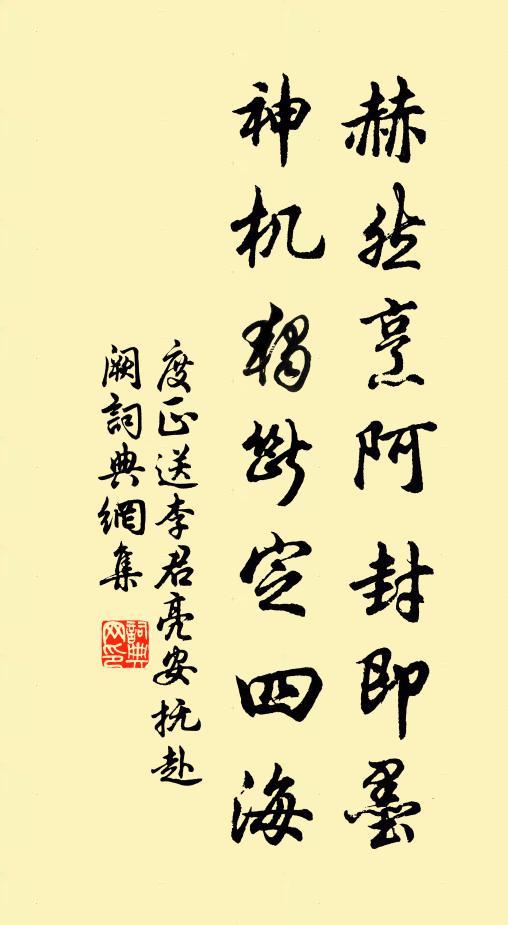 赫然烹阿封即墨
神机獨斷定四海
度正送李君亮安抚赴
阙詞典網集
詞典
网印